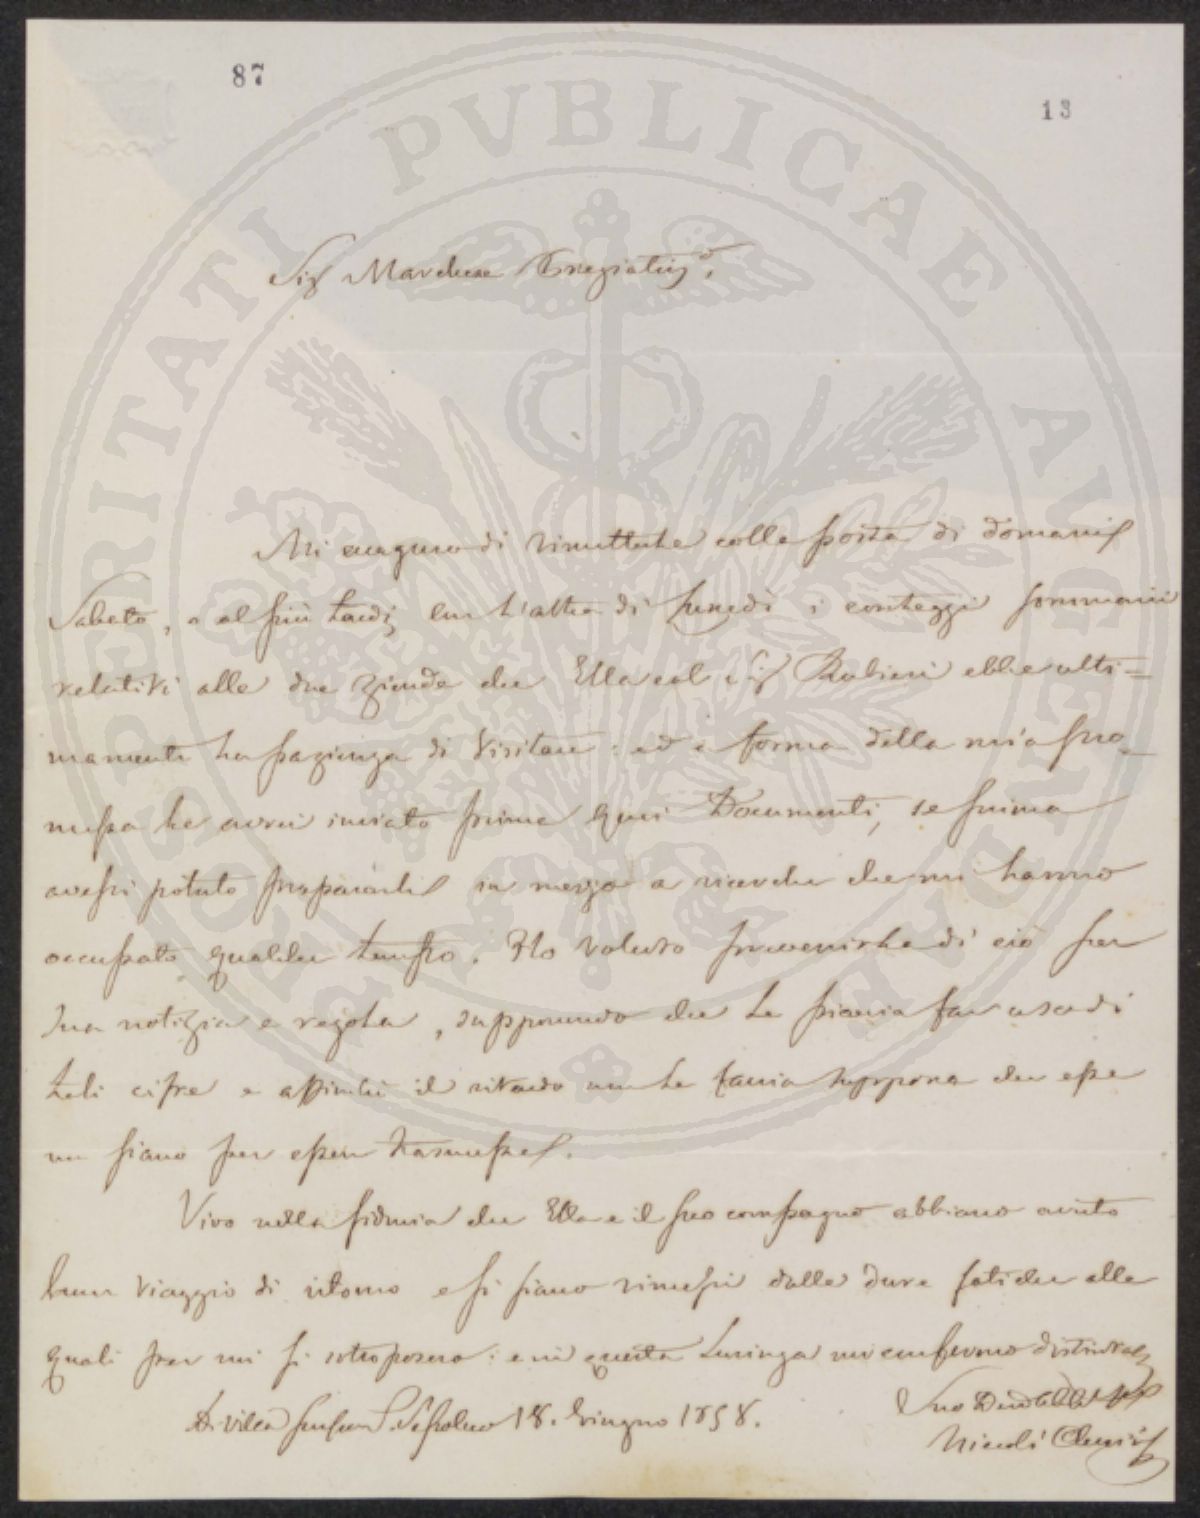 87
13
PROSPERITATI PVBLICAE AVGENDAE
Sig Marchese Pregiatis.o
Mi auguro di rimetterle colla posta di domani
Sabato, o al più tardi con l'altra di Lunedì i conteggi sommari
relativi alle due Aziende che Ella col Sig Rubieri ebbe ulti=
mamente la pazienza di visitare: ed a forma della mia pro_
messa le avrei inviato prima quei Documenti, se prima
avessi potuto prepararli in mezzo a ricerche che mi hanno
occupato qualche tempo. Ho voluto prevenirla di ciò per
sua notizia e regola, supponendo che le piaccia far uso di
tali cifre e affinchè il ritardo non le faccia supporre che esse
non siano per esser trasmesse.
Vivo nella fiducia che Ella e il suo compagno abbiano avuto
buon viaggio di ritorno e si siano rimessi dalle dure fatiche alle
quali per me si sottoposero: e in questa lusinga mi confermo distint
Di villa Sansepolcro 18. Giugno 1858.
Suo
Nicolò